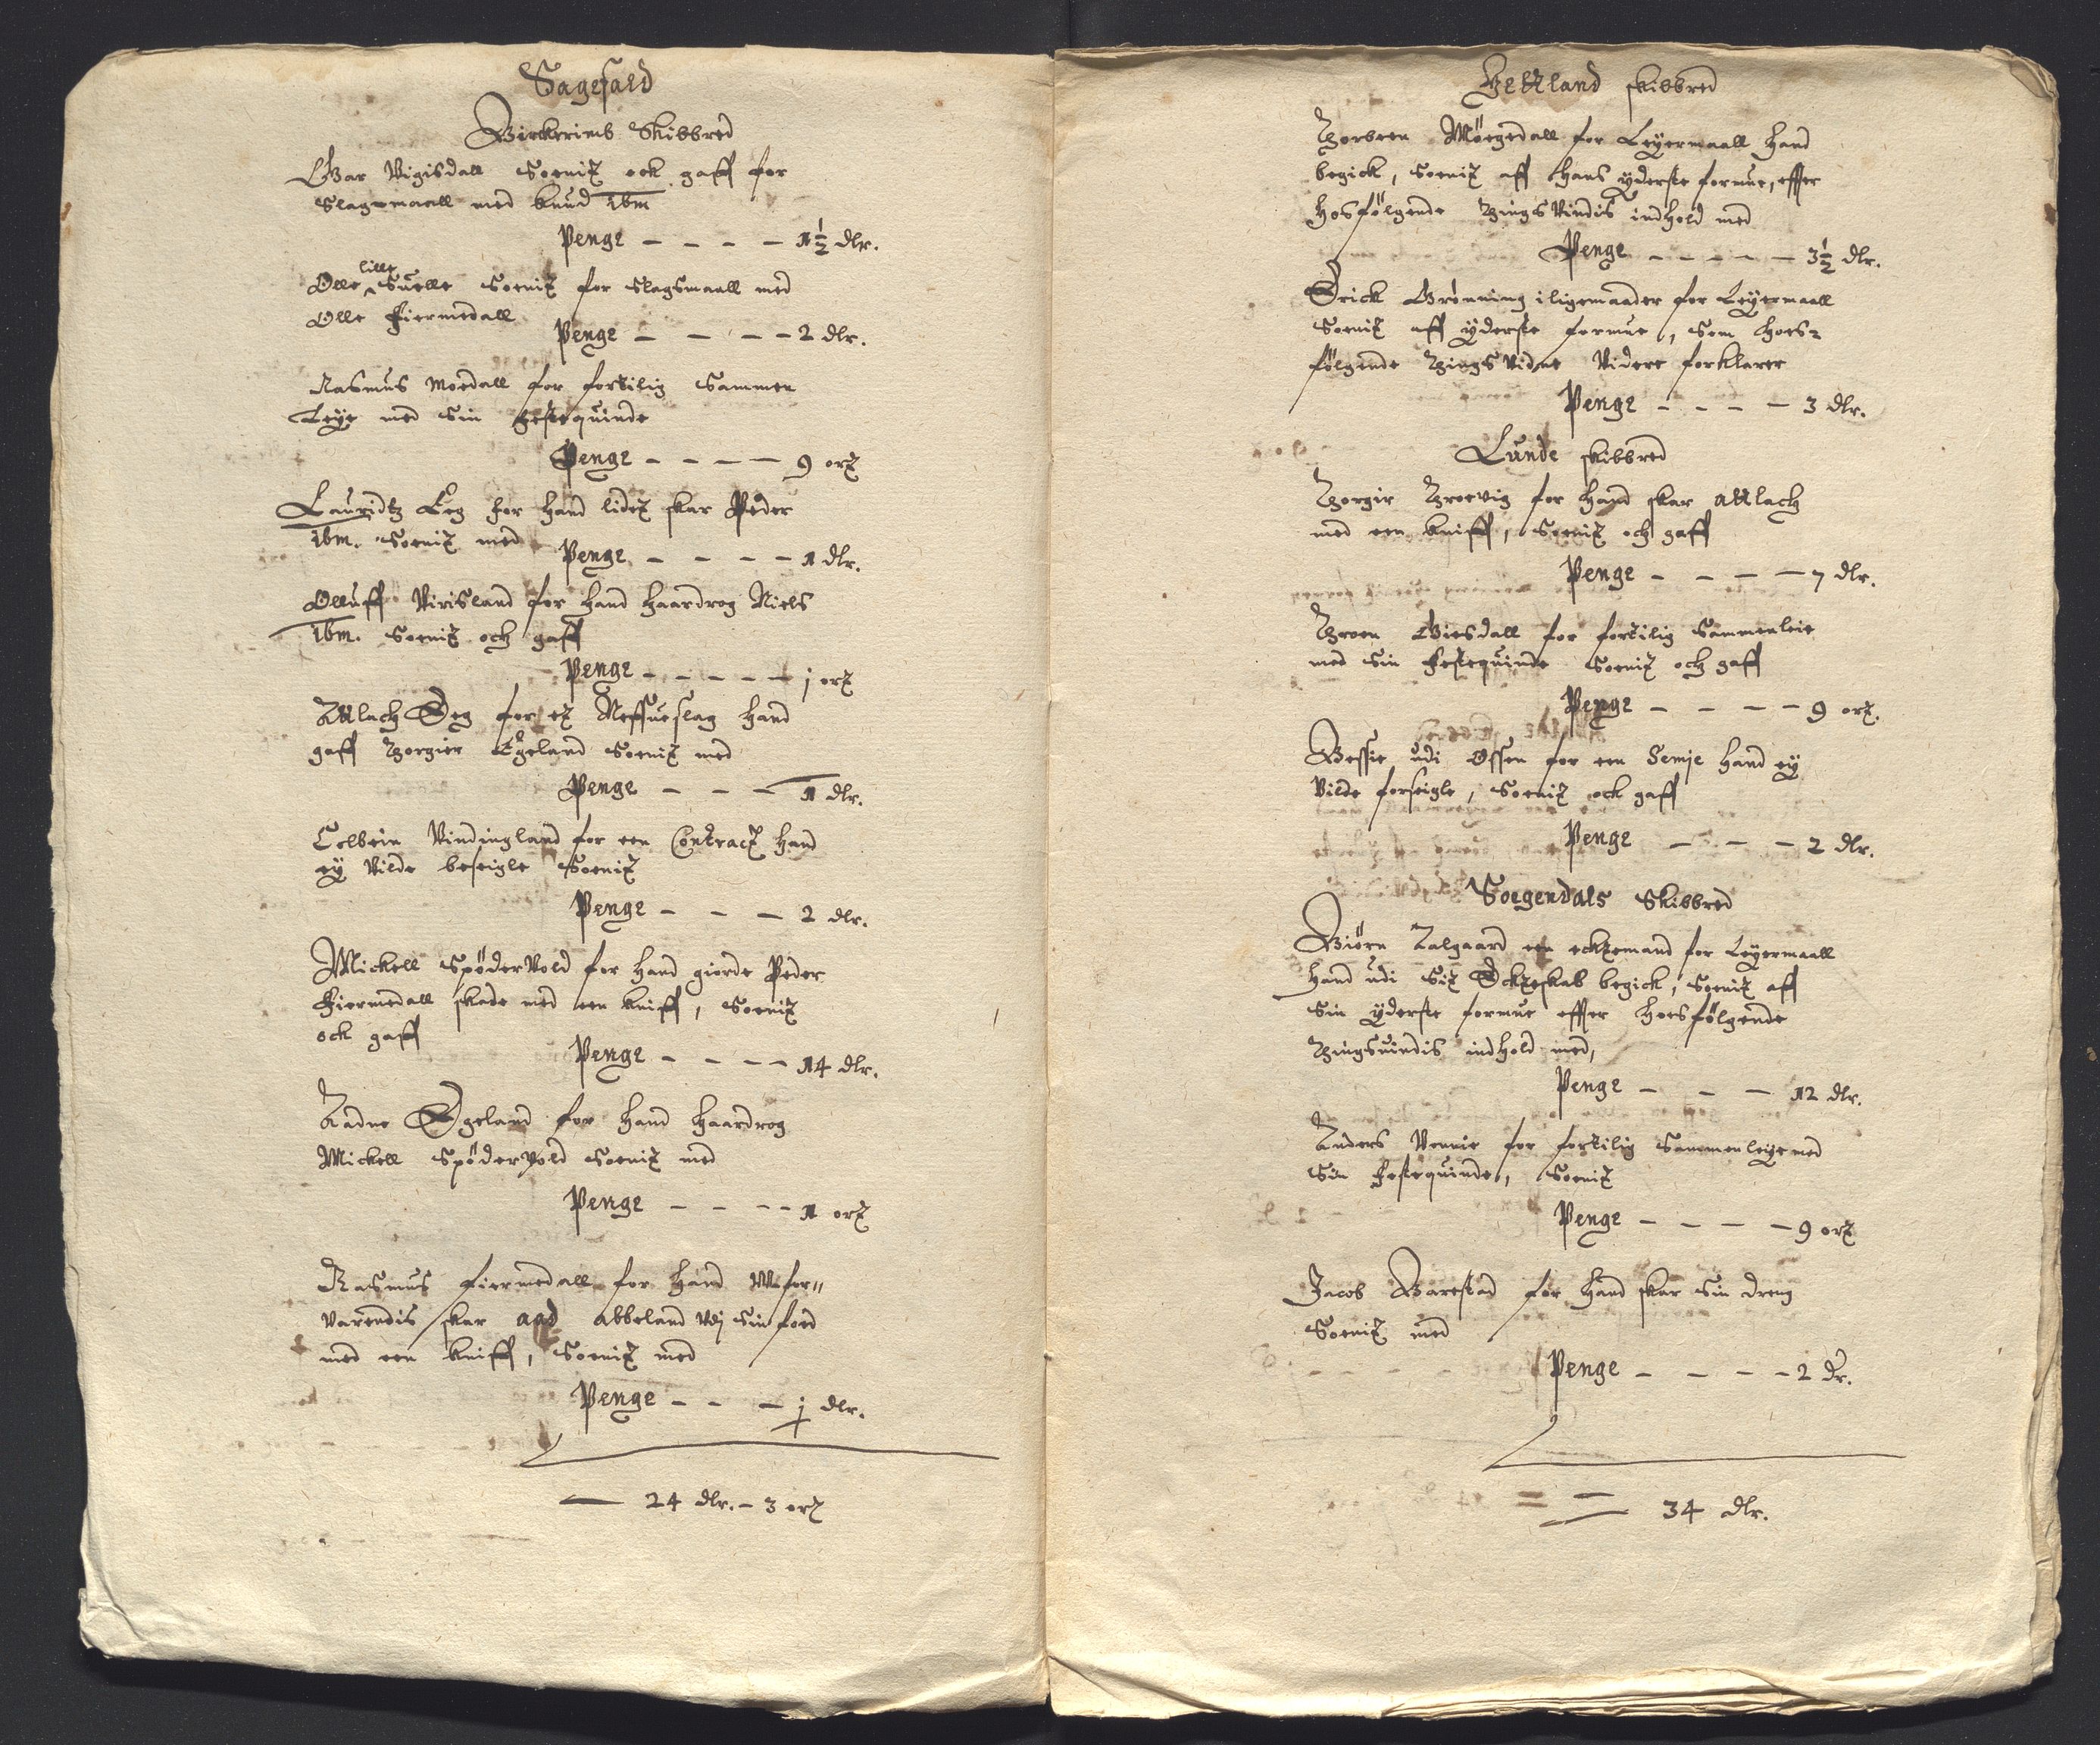 Sagefald
Birckrimb Skibbred
Gar Vigisdall Soenit ock gaff for
Slagsmaall med knud ibm
Penge - - - - 1½ dlr.
lille
Olle Suelle Soenit for slagsmaall med
Olle Fiermedall
Penge - - - - 2 dlr.
Rasmus Moedall for fortilig Sammen
Leye med Sin festequinde
Penge - - - - 9 ort
Lauridtz Eeg for hand lidet skar Peder
ibm. Soenit med
Penge - - - - 1 dlr.
Olluff Virisland for hand haardrog Niels
ibm. Soenit och gaff
Penge - - - - - j ort
Atlach Eeg for et Neffueslag hand
gaff Torgier Egeland Soenit med
Penge - - - 1 dlr.
Colbein Vindingland for een Contract hand
ey Vilde beseigle Soenit
Penge - - - 2 dlr.
Mickell Spödervold for hand giorde Peder
Fiermedall skade med een kniff, Soenit
ock gaff
Penge - - - - 14 dlr.
Aadne Egeland for hand haardrog
Mickell Spödervold Soenit med
Penge - - - - 1 ort
Rasmus fiermedall for hand Wfor-
varendis skar aad Abbeland Vdj Sin foed
med een kniff, Soenit med
Penge - - - j dlr.
24 dlr. - 3 ort
Hetland skibbred
Torben Möegedall for Leyermaall hand
begick, Soenit aff Hans yderste formue, effter
hosfölgende TingsVindis indhold med
Penge - - - - - 3½ dlr.
Erick Grönning iligemaader for Leyermaall
Soenit aff yderste formue, Som hoes-
fölgende TingsVidne Videre forklarer
Penge - - - - 3 dlr.
Lunde skibbred
Torgir Troevig for hand skar Attlach
med een kniff, Soenit och gaff
Penge - - - - 7 dlr.
Troen Giesdall for fortilig Sammenleie
med Sin Festequinde Soenit och gaff
Penge - - - - 9 ort.
Gessie udi Ossen for een Semje hand ey
Vilde forseigle, Soenit ock gaff
Penge - - - 2 dlr.
Soegendals Skibbred
Biörn Aalgaard een ecktemand for Leyermaall
hand udi Sit Eckteskab begick, Soenit aff
Sin yderste formue effter hoesfölgende
Tingsuindis indhold med,
Penge - - - 12 dlr.
Anders Vennie for fortilig Sammenleye med
Sin Festequinde, Soenit
Penge - - - - 9 ort
Jacob Barestad for hand skar Sin dreng
Soenit med
Penge - - - - 2 dr.
34 dlr.